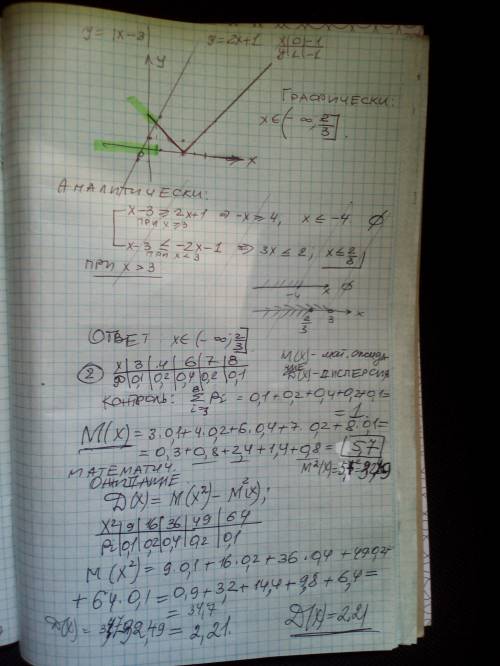 y = |x-3|
y = 2x+1 x|0|-1
y|1|-1
y
x
ГРАФИЧЕСКИ:
x∈(-∞; 2/3].
АНАЛИТИЧЕСКИ:
x-3 ≥ 2x+1 ⇒ -x ≥ 4, x ≤ -4 ∅
ПРИ x ≥ 3
x-3 ≤ -2x-1 ⇒ 3x ≤ 2; x ≤ 2/3
ПРИ x < 3
ПРИ x > 3
-4 x ∅
2/3 3 x
ОТВЕТ x∈(-∞; 2/3]
② x | 3 | 4 | 6 | 7 | 8
P | 0,1 | 0,2 | 0,4 | 0,2 | 0,1
M(x) - мат. ожида
ние
D(x) - ДИСПЕРСИЯ
КОНТРОЛЬ: Σ Pi = 0,1+0,2+0,4+0,2+0,1
= 1.
M(x) = 3·0,1+4·0,2+6·0,4+7·0,2+8·0,1=
= 0,3+0,8+2,4+1,4+0,8= 5,7
МАТЕМАТИЧ.
ОЖИДАНИЕ
D(x) = M(x²) - M²(x);
x² | 9 | 16 | 36 | 49 | 64
Pi | 0,1 | 0,2 | 0,4 | 0,2 | 0,1
M(x²) = 9·0,1+16·0,2+36·0,4+49·0,2+
+64·0,1=0,9+3,2+14,4+9,8+6,4=
= 34,7
32,49 = 2,21.
D(x)=2,21